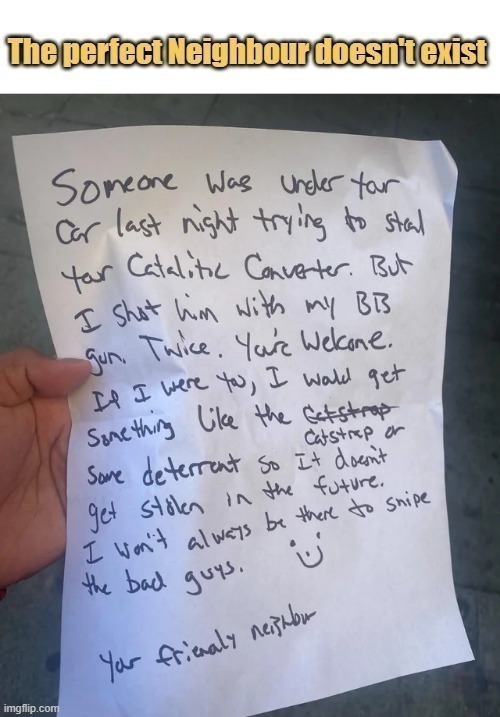 The perfect Neighbour doesn't exist
Someone was under your
Car last night trying to steal
your Catalitic Converter. But
I shot him with my BB
gun. Twice. You're Welcome.
If I were you, I would get
Something like the Catstrap
Catstrap or
Some deterrent so It doesn't
get stolen in the future.
I won't always be there to snipe
the bad guys. :)
Your friendly neighbor
imgflip.com